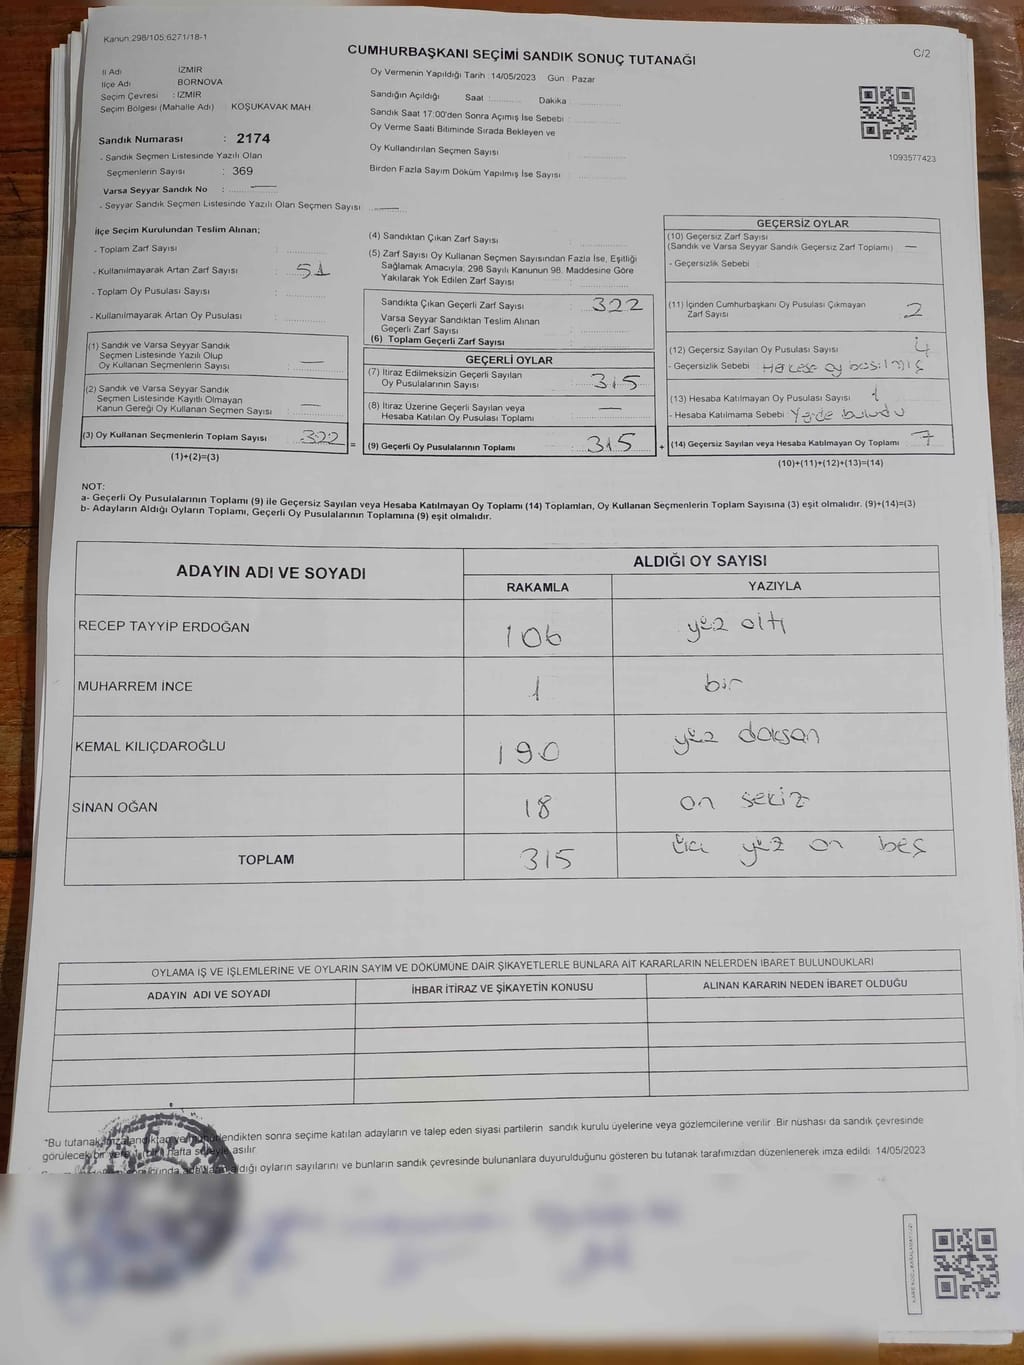 Kanun:298/105;6271/18-1
CUMHURBAŞKANI SEÇİMİ SANDIK SONUÇ TUTANAĞI
C/2
İl Adı İZMİR
İlçe Adı BORNOVA
Seçim Çevresi : İZMİR
Seçim Bölgesi (Mahalle Adı) KOŞUKAVAK MAH.
Sandık Numarası : 2174
- Sandık Seçmen Listesinde Yazılı Olan
Seçmenlerin Sayısı : 369
Varsa Seyyar Sandık No : —
- Seyyar Sandık Seçmen Listesinde Yazılı Olan Seçmen Sayısı —
Oy Vermenin Yapıldığı Tarih :14/05/2023 Gün : Pazar
Sandığın Açıldığı Saat :.......... Dakika :
Sandık Saat 17:00'den Sonra Açımış İse Sebebi :
Oy Verme Saati Bitiminde Sırada Bekleyen ve
Oy Kullandırılan Seçmen Sayısı
Birden Fazla Sayım Döküm Yapılmış İse Sayısı :
1093577423
İlçe Seçim Kurulundan Teslim Alınan;
- Toplam Zarf Sayısı :
- Kullanılmayarak Artan Zarf Sayısı : 51
- Toplam Oy Pusulası Sayısı :
- Kullanılmayarak Artan Oy Pusulası :
(1) Sandık ve Varsa Seyyar Sandık
Seçmen Listesinde Yazılı Olup
Oy Kullanan Seçmenlerin Sayısı —
(2) Sandık ve Varsa Seyyar Sandık
Seçmen Listesinde Kayıtlı Olmayan
Kanun Gereği Oy Kullanan Seçmen Sayısı —
(3) Oy Kullanan Seçmenlerin Toplam Sayısı 322 =
(1)+(2)=(3)
(4) Sandıktan Çıkan Zarf Sayısı :
(5) Zarf Sayısı Oy Kullanan Seçmen Sayısından Fazla İse, Eşitliği
Sağlamak Amacıyla, 298 Sayılı Kanunun 98. Maddesine Göre
Yakılarak Yok Edilen Zarf Sayısı :
Sandıkta Çıkan Geçerli Zarf Sayısı : 322
Varsa Seyyar Sandıktan Teslim Alınan
Geçerli Zarf Sayısı :
(6) Toplam Geçerli Zarf Sayısı :
GEÇERLİ OYLAR
(7) İtiraz Edilmeksizin Geçerli Sayılan
Oy Pusulalarının Sayısı : 315
(8) İtiraz Üzerine Geçerli Sayılan veya
Hesaba Katılan Oy Pusulası Toplamı : —
(9) Geçerli Oy Pusulalarının Toplamı : 315 +
GEÇERSİZ OYLAR
(10) Geçersiz Zarf Sayısı
(Sandık ve Varsa Seyyar Sandık Geçersiz Zarf Toplamı) —
- Geçersizlik Sebebi :
(11) İçinden Cumhurbaşkanı Oy Pusulası Çıkmayan
Zarf Sayısı : 2
(12) Geçersiz Sayılan Oy Pusulası Sayısı : 4
- Geçersizlik Sebebi : Herkese oy basılmış
(13) Hesaba Katılmayan Oy Pusulası Sayısı : 1
- Hesaba Katılmama Sebebi : Yerde bulundu
(14) Geçersiz Sayılan veya Hesaba Katılmayan Oy Toplamı : 7
(10)+(11)+(12)+(13)=(14)
NOT:
a- Geçerli Oy Pusulalarının Toplamı (9) ile Geçersiz Sayılan veya Hesaba Katılmayan Oy Toplamı (14) Toplamları, Oy Kullanan Seçmenlerin Toplam Sayısına (3) eşit olmalıdır. (9)+(14)=(3)
b- Adayların Aldığı Oyların Toplamı, Geçerli Oy Pusulalarının Toplamına (9) eşit olmalıdır.
ADAYIN ADI VE SOYADI
ALDIĞI OY SAYISI
RAKAMLA YAZIYLA
RECEP TAYYİP ERDOĞAN 106 yüz altı
MUHARREM İNCE 1 bir
KEMAL KILIÇDAROĞLU 190 yüz doksan
SİNAN OĞAN 18 on sekiz
TOPLAM 315 yüz on beş
OYLAMA İŞ VE İŞLEMLERİNE VE OYLARIN SAYIM VE DÖKÜMÜNE DAİR ŞİKAYETLERLE BUNLARA AİT KARARLARIN NELERDEN İBARET BULUNDUKLARI
ADAYIN ADI VE SOYADI İHBAR İTİRAZ VE ŞİKAYETİN KONUSU ALINAN KARARIN NEDEN İBARET OLDUĞU
*Bu tutanak sonra seçime katılan adayların ve talep eden siyasi partilerin sandık kurulu üyelerine veya gözlemcilerine verilir. Bir nüshası da sandık çevresinde
görülecek bir yere hafta asılır.
aldığı oyların sayılarını ve bunların sandık çevresinde bulunanlara duyurulduğunu gösteren bu tutanak tarafımızdan düzenlenerek imza edildi. 14/05/2023